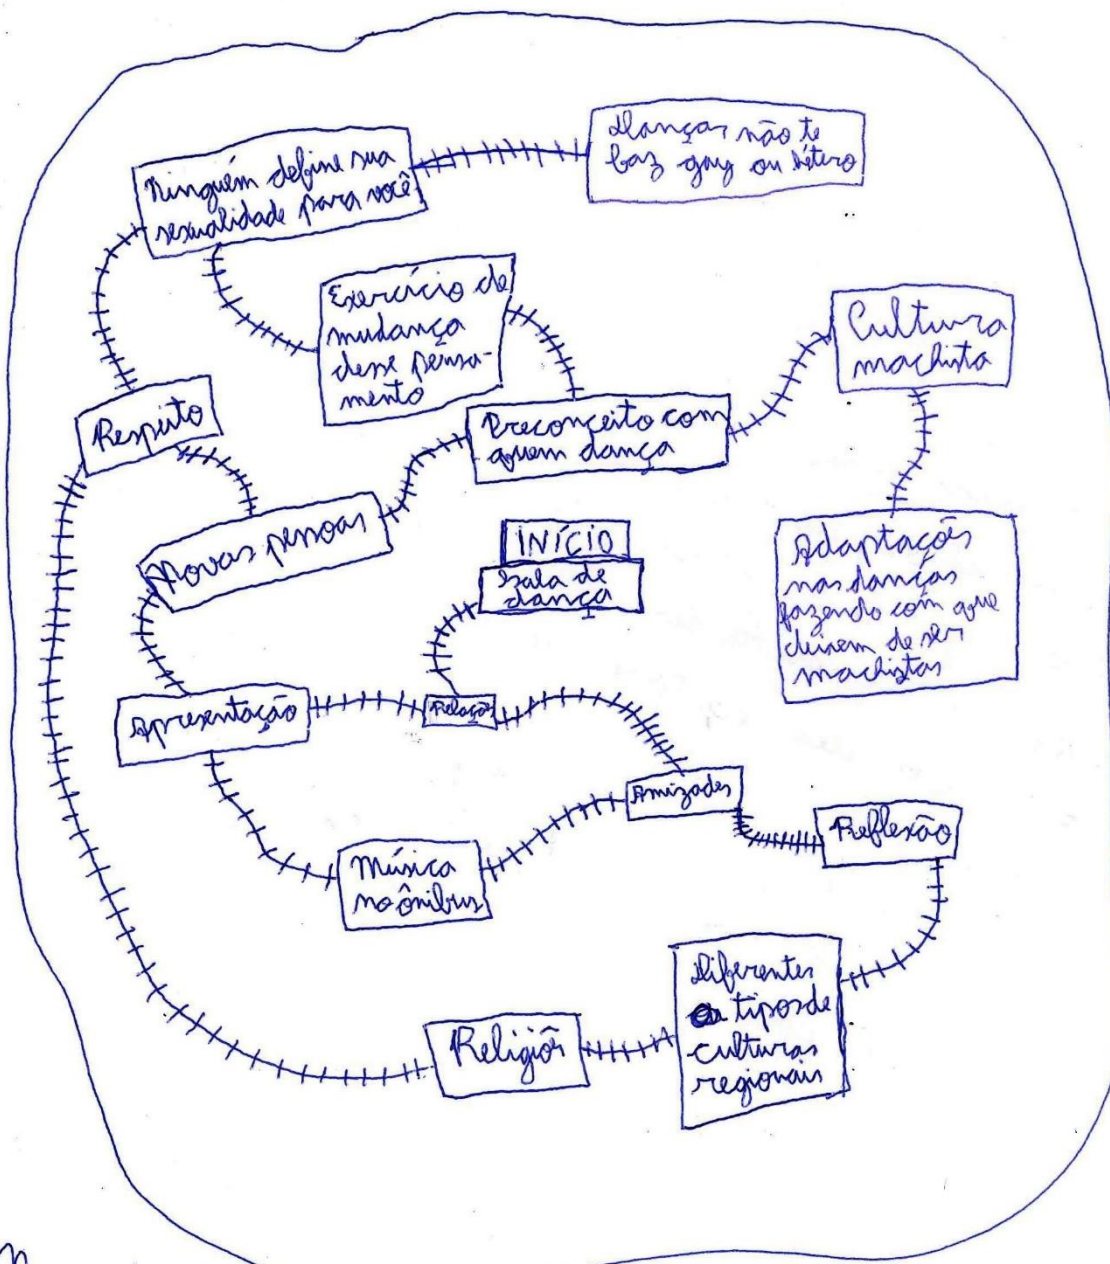 Dançar não te
faz gay ou hétero
Ninguém define sua
sexualidade para você
Exercício de
mudança
desse pensa-
mento
Cultura
machista
Respeito
Preconceito com
quem dança
Novas pessoas
INÍCIO
Sala de
dança
Adaptações
nas danças
fazendo com que
deixem de ser
machistas
Apresentação
Relação
Amizades
Reflexão
Música
no ônibus
Diferentes
tipos de
culturas
regionais